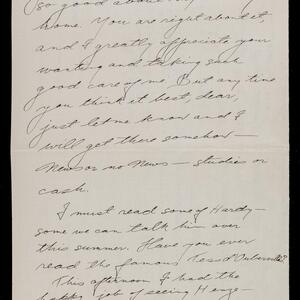 so good about my
home. You are right about it,
and I greatly appreciate your
wanting and taking such
good care of me. But any time
you think it best, dear,
just let me know and I
will get there somehow—
News or no News— studies or
cash.
I must read some of Hardy—
some we can talk him over
this summer. Have you ever
read the famous Tess d'Uberville?
This afternoon I had the
happy job of seeing